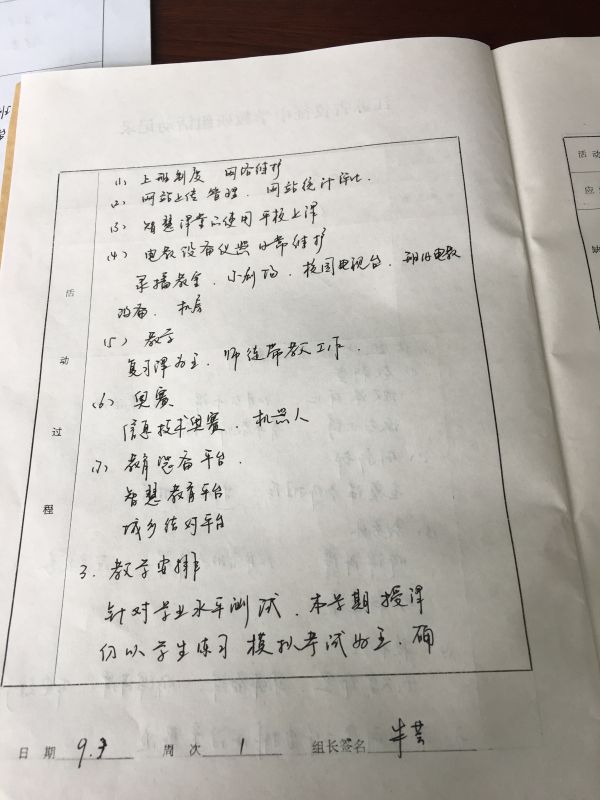 (1) 上班制度 网络维护
(2) 网站上传 管理. 网站统计评比.
(3) 智慧课堂的使用平板上课
(4) 电教设备仪器日常维护
录播教室. 小剧场. 校园电视台. 电教
设备. 机房
(5) 教学
复习课为主. 师徒带教工作.
(6) 奥赛
信息技术奥赛. 机器人
(7) 教育装备平台.
智慧教育平台
城乡结对平台
3. 教学安排
针对学业水平测试. 本学期授课
仍以学生练习模拟考试为主. 确
活动过程
日期 9.7 周次 1 组长签名 牛芸
活动
应
缺